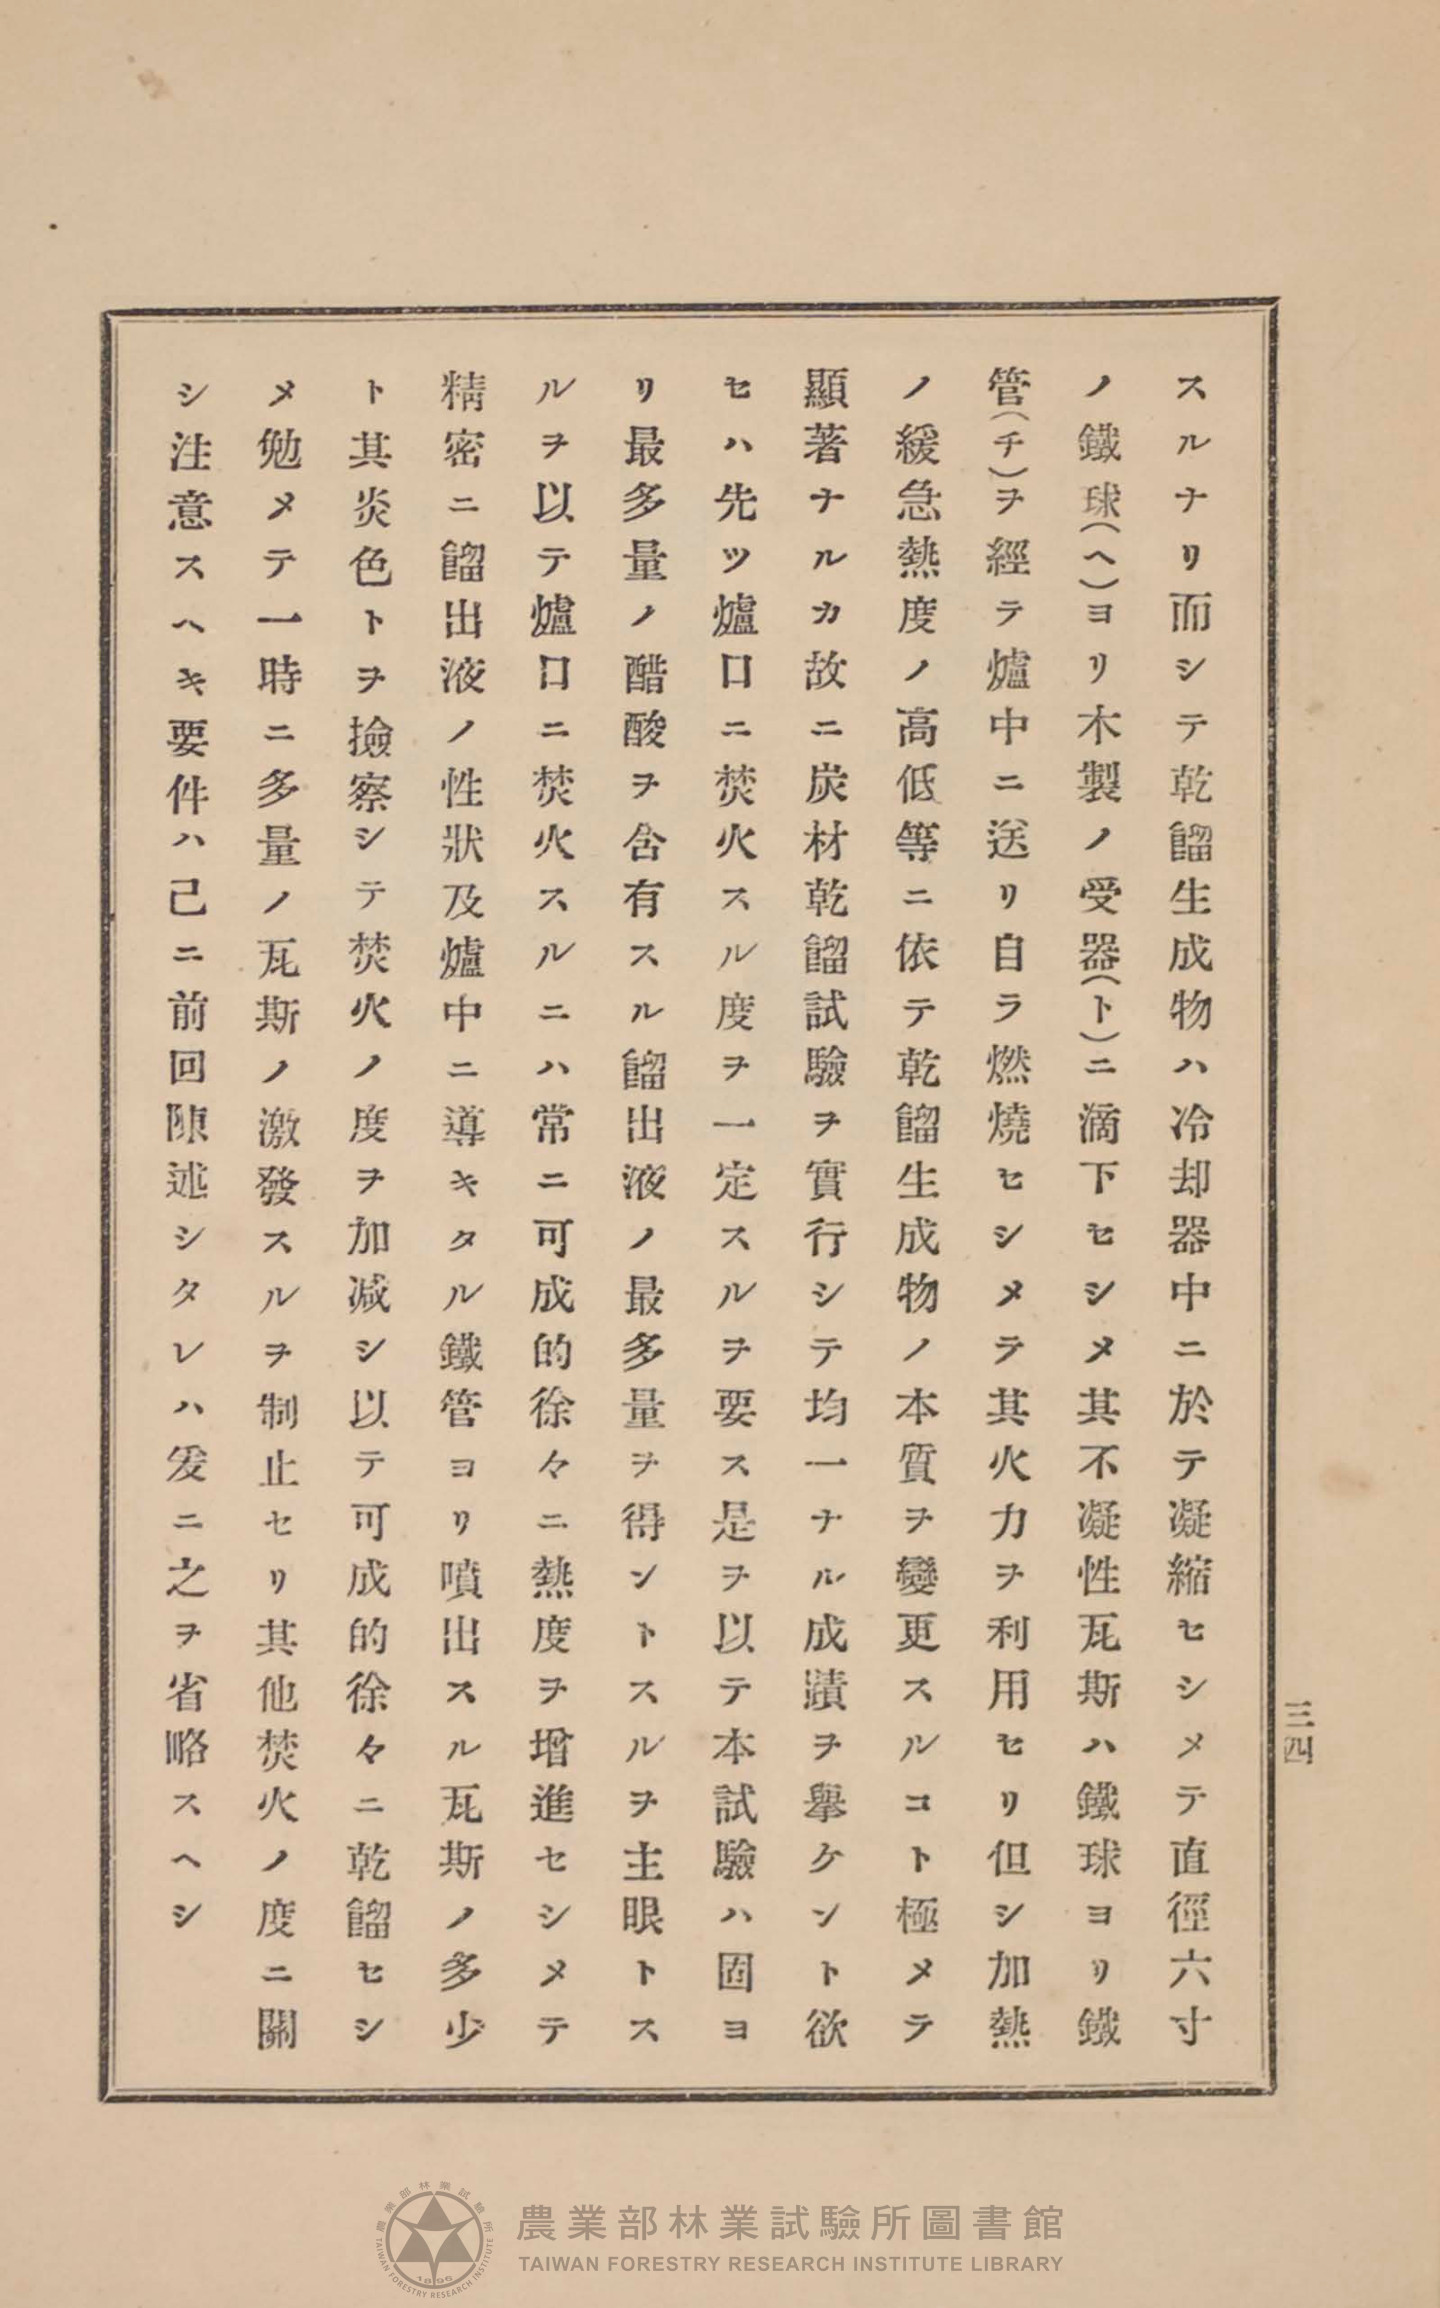 スルナリ而シテ乾餾生成物ハ冷却器中ニ於テ凝縮セシメテ直徑六寸
ノ鐵球(ヘ)ヨリ木製ノ受器(ト)ニ滴下セシメ其不凝性瓦斯ハ鐵球ヨリ鐵
管(チ)ヲ經テ爐中ニ送リ自ラ燃燒セシメテ其火力ヲ利用セリ但シ加熱
ノ緩急熱度ノ高低等ニ依テ乾餾生成物ノ本質ヲ變更スルコト極メテ
顯著ナルカ故ニ炭材乾餾試驗ヲ實行シテ均一ナル成蹟ヲ擧ケント欲
セハ先ツ爐口ニ焚火スル度ヲ一定スルヲ要ス是ヲ以テ本試驗ハ固ヨ
リ最多量ノ醋酸ヲ含有スル餾出液ノ最多量ヲ得ントスルヲ主眼トス
ルヲ以テ爐口ニ焚火スルニハ常ニ可成的徐々ニ熱度ヲ增進セシメテ
精密ニ餾出液ノ性狀及爐中ニ導キタル鐵管ヨリ噴出スル瓦斯ノ多少
ト其炎色トヲ撿察シテ焚火ノ度ヲ加减シ以テ可成的徐々ニ乾餾セシ
メ勉メテ一時ニ多量ノ瓦斯ノ激發スルヲ制止セリ其他焚火ノ度ニ關
シ注意スヘキ要件ハ己ニ前回陳述シタレハ爰ニ之ヲ省略スヘシ
三四
農業部林業試驗所圖書館
TAIWAN FORESTRY RESEARCH INSTITUTE LIBRARY
農業部林業試驗所
TAIWAN FORESTRY RESEARCH INSTITUTE
1896